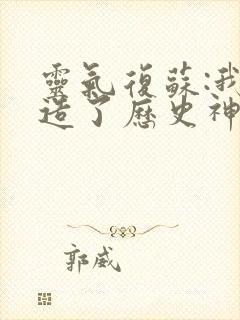 靈氣復蘇:我
造了歷史神
郭威